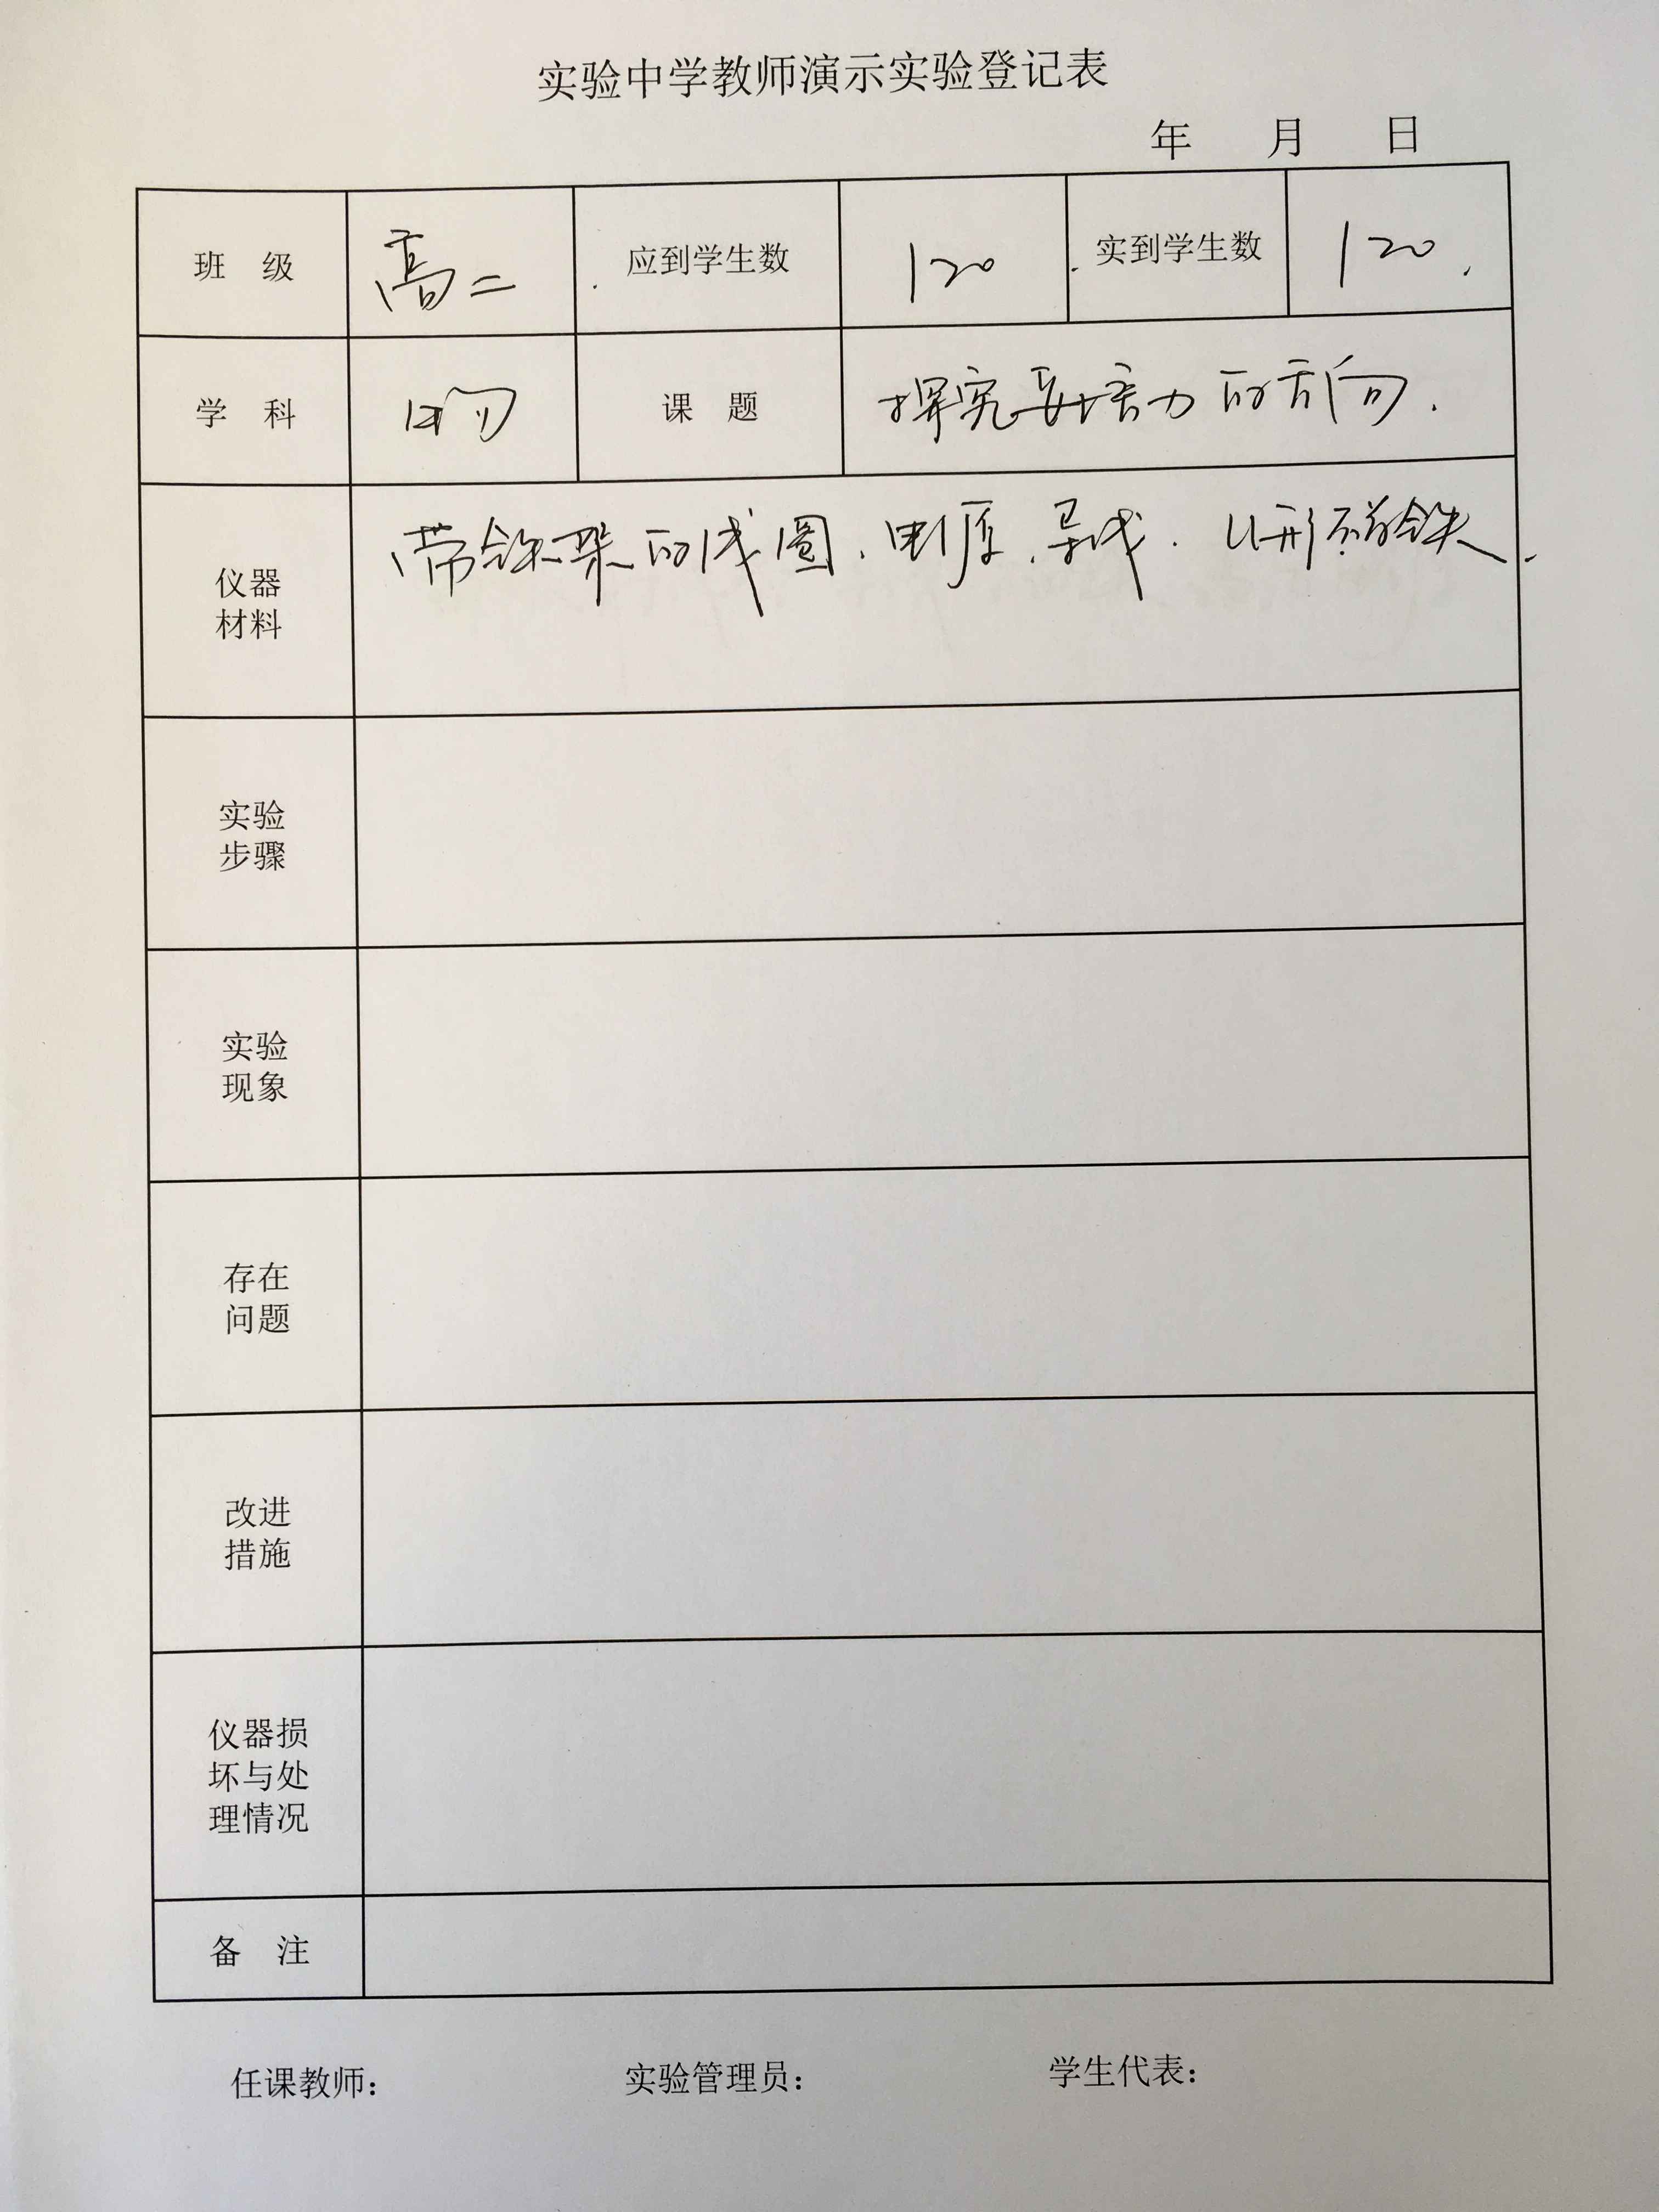 实验中学教师演示实验登记表
年 月 日
班 级 高二. 应到学生数 120. 实到学生数 120.
学 科 物 课 题 探究安培力的方向.
仪器 带铁架的线圈.电源.导线.U形磁铁.
材料
实验
步骤
实验
现象
存在
问题
改进
措施
仪器损
坏与处
理情况
备 注
任课教师： 实验管理员： 学生代表：